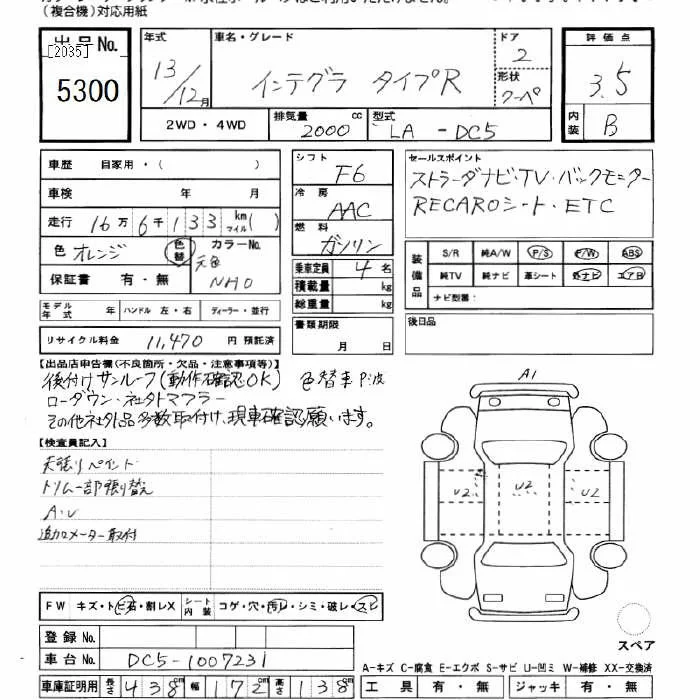 (複合機)対応用紙
出品No.
[2035]
5300
年式 13/12月
車名・グレード インテグラ タイプR
ドア 2
形状 クーペ
評価点 3.5
内装 B
2WD・4WD
排気量 2000 cc
型式 LA - DC5
車歴 自家用・( )
車検 年 月
走行 16万6千133 km マイル( )
色 オレンジ 色替 カラーNo. 元色 NH0
保証書 有・無
シフト F6
冷房 AAC
燃料 ガソリン
乗車定員 4名
積載量 kg
総重量 kg
セールスポイント
ストラーダナビ・TV・バックモニター
RECAROシート・ETC
装備品 S/R 純A/W P/S P/W ABS
純TV 純ナビ 革シート 社ナビ エアB
ナビ型番:
モデル年式 年 ハンドル 左・右 ディーラー・並行
リサイクル料金 11,470 円 預託済
書類期限 月 日
後日品
【出品店申告欄(不良箇所・欠品・注意事項等)】
後付けサンルーフ(動作確認OK) 色替車
ローダウン・社外マフラー
その他社外品多数取付け、現車確認願います。
【検査員記入】
天張りペイント
トリム一部張り替え
A・U
追加メーター取付
A1
U2 U2 U2
FW キズ・トビ石・割レX シート内装 コゲ・穴・汚レ・シミ・破レ・スレ
登録No.
車台No. DC5-1007231
車庫証明用 長さ 438cm 幅 172cm 高さ 138cm
スペア
A-キズ C-腐食 E-エクボ S-サビ U-凹ミ W-補修 XX-交換済
工具 有・無 ジャッキ 有・無